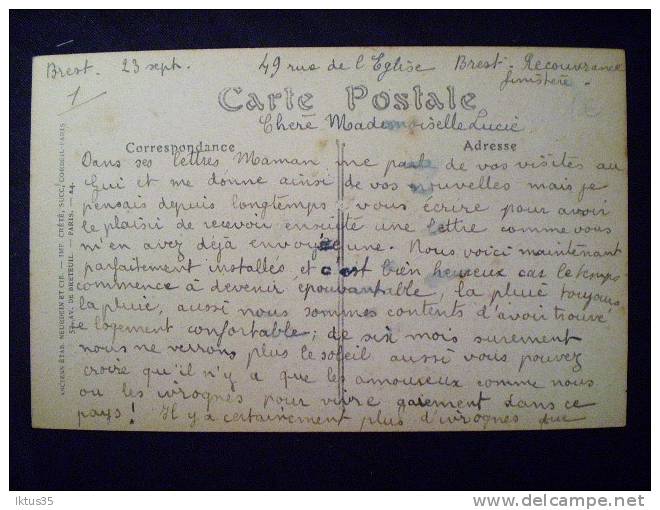 Brest. 23 sept. 49 rue de l'Eglise Brest. Recouvrance
finistère.
1
Carte Postale
Chère Mademoiselle Lucie
Correspondance Adresse
Dans ses lettres Maman me parle de vos visites au
Gui et me donne ainsi de vos nouvelles mais je
pensais depuis longtemps vous écrire pour avoir
le plaisir de recevoir ensuite une lettre comme vous
m'en avez déjà envoyée une. Nous voici maintenant
parfaitement installés et c'est bien heureux car le temps
commence à devenir épouvantable, la pluie toujours
la pluie, aussi nous sommes contents d'avoir trouvé
ce logement confortable; de six mois surement
nous ne verrons plus le soleil aussi vous pouvez
croire qu'il n'y a que les amoureux comme nous
ou les ivrognes pour vivre gaiement dans ce
pays! Il y a certainement plus d'ivrognes que
ANCIENS ÉTAB. NEURDEIN ET CIE. — IMP. CRÉTÉ, SUCC. CORBEIL-PARIS
52, AV. DE BRETEUIL. — PARIS. —
Iktus35
delcampe.net